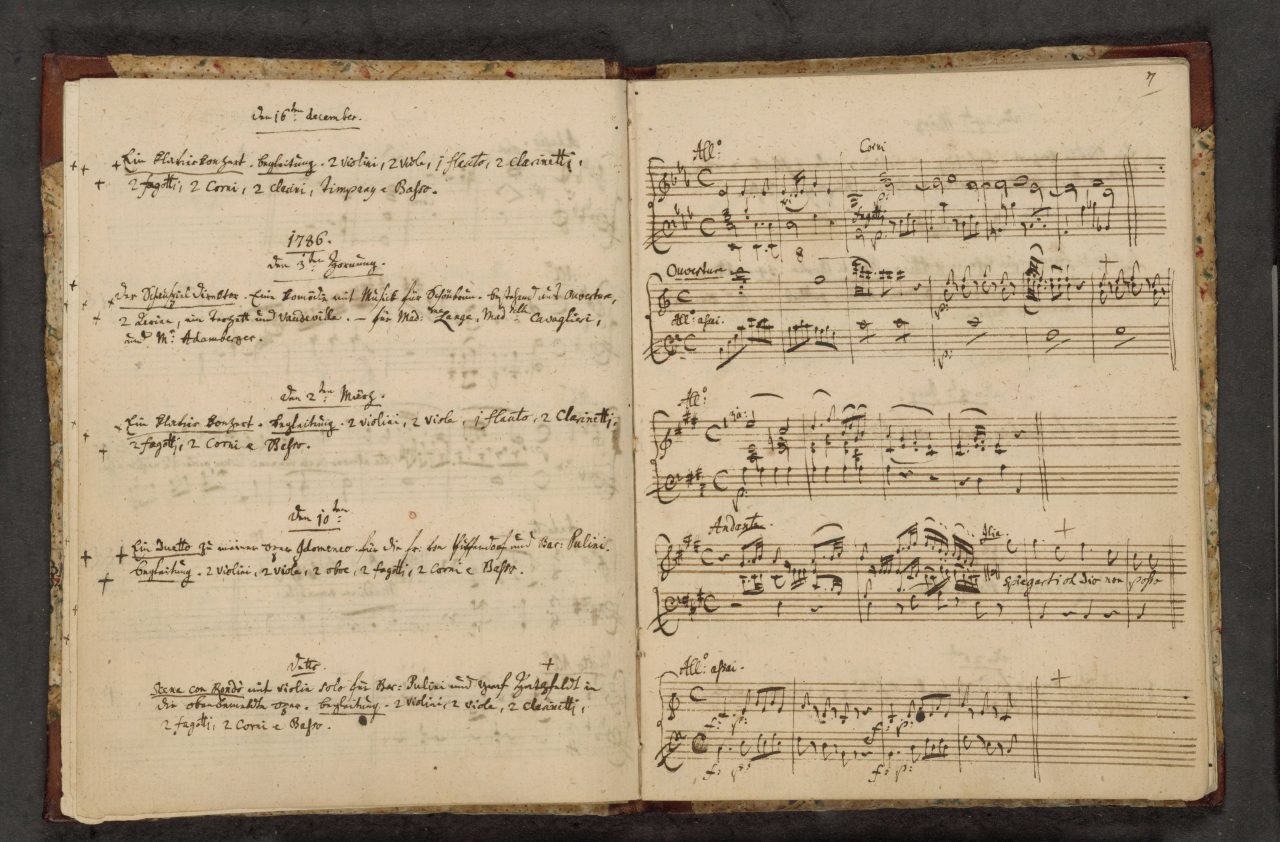 den 16ten december.
Ein klavierkonzert. begleitung. 2 violini, 2 viole, 1 flauto, 2 clarinetti,
2 fagotti, 2 corni, 2 clarini, timpany e Basso.
1786.
den 3ten Hornung.
Der Schauspiel Direktor. Eine komödie mit Musick für Schönbrun. bestehend aus Ouverture,
2 Arien, ein terzett und vaudeville. – für Mad:me Lange, Mad:selle Cavaglieri,
und Mr: Adamberger.
den 2ten März.
Ein klavier konzert. begleitung. 2 violini, 2 viole, 1 flauto, 2 clarinetti,
2 fagotti, 2 corni e Basso.
den 10ten
Ein Duetto zu meiner oper Idomeneo. für die fr: von Puffendorf und Bar: Pulini.
begleitung. 2 violini, 2 viole, 2 oboe, 2 fagotti, 2 corni e Basso.
detto.
Scena con Rondò mit violin solo für Bar: Pulini und graf Hatzfeldt in
die obenbemeldte oper. begleitung. 2 violini, 2 viole, 2 clarinetti,
2 fagotti, 2 corni e Basso.
7
All:o
Corni
fagotti
p:
8
Ouverture
All:o assai.
p:
p:
All:o
p:
Andante.
Ilia
spiegarti oh dio non posso
All:o assai.
f: p: f: p:
f: p: f: p: